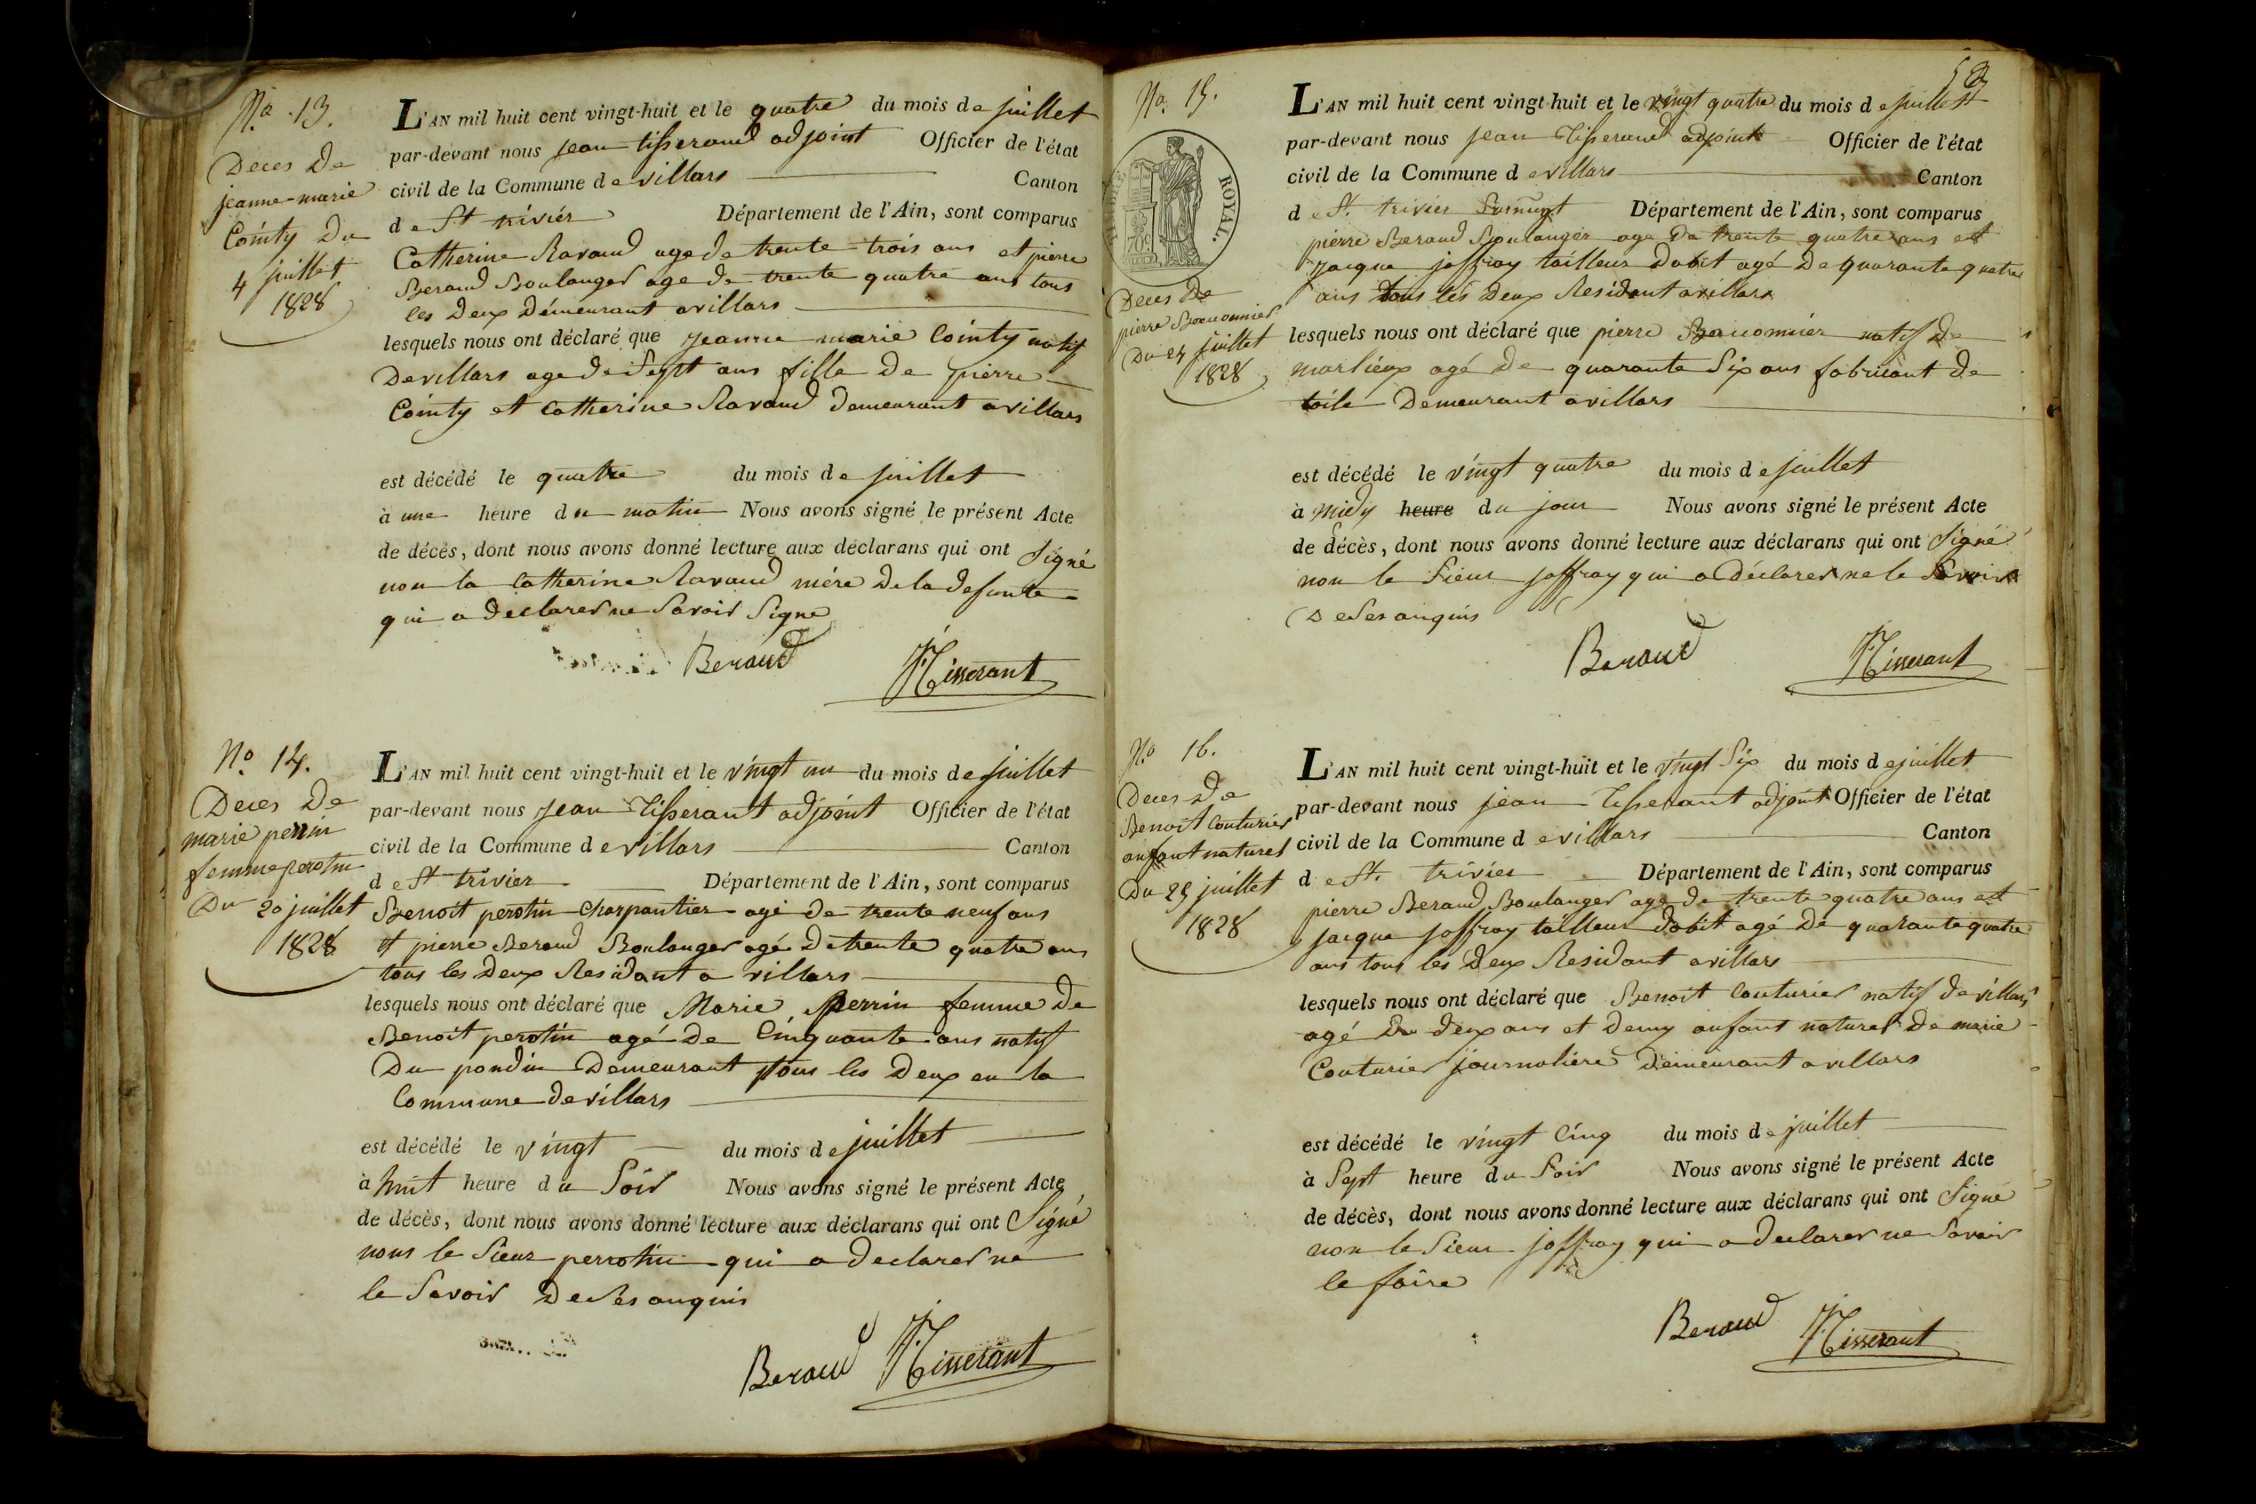 No. 13.
Deces De
jeanne-marie
Cointy Du
4 juillet
1828
L'AN mil huit cent vingt-huit et le quatre du mois de juillet
par-devant nous jean tisserand adjoint Officier de l'état
civil de la Commune de villars Canton
de St trivier Département de l'Ain, sont comparus
Catherine Ravaud age de trente-trois ans et pierre
Beraud Boulanger age de trente quatre ans tous
les Deux Démeurant a villars
lesquels nous ont déclaré que jeanne marie Cointy natif
De villars age de Sept ans fille De pierre
Cointy et Catherine Ravaud Demeurant a villars
est décédé le quatre du mois de juillet
à une heure du matin Nous avons signé le présent Acte
de décès, dont nous avons donné lecture aux déclarans qui ont Signé
non la Catherine Ravaud mére De la defunte
qui a declarer ne Savoir Signe
Beraud Tisserant
No. 14.
Deces De
marie perrin
femme perotin
Du 20 juillet
1828
L'AN mil huit cent vingt-huit et le vingt un du mois de juillet
par-devant nous jean Tisserant adjoint Officier de l'état
civil de la Commune de villars Canton
de St trivier Département de l'Ain, sont comparus
Benoit perotin Charpantier agé de trente neuf ans
et pierre Beraud Boulanger agé De trente quatre ans
tous les Deux Residant a villars
lesquels nous ont déclaré que Marie perrin femme De
Benoit perotin agé de Cinquante ans natif
Du pondin Demeurant tous les Deux en la
Commune de villars
est décédé le vingt du mois de juillet
à huit heure du Soir Nous avons signé le présent Acte
de décès, dont nous avons donné lecture aux déclarans qui ont Signé
nous le Sieur perrotin qui a declarer ne
le Savoir De Ses anquis
Beraud Tisserant
58
No. 15.
ROYAL.
Deces De
pierre
Du 24 juillet
1828
L'AN mil huit cent vingt-huit et le vingt quatre du mois de juillet
par-devant nous jean Tisserand adjoint Officier de l'état
civil de la Commune de villars Canton
de St. trivier Département de l'Ain, sont comparus
pierre Beraud Boulanger age De trente quatre ans et
jacque joffray tailleur dabit agé De quarante quatre
ans tous les Deux Residant a villars
lesquels nous ont déclaré que pierre natif De
marlieux agé De quarante Six ans fabricant De
toile Demeurant a villars
est décédé le vingt quatre du mois de juillet
à midy heure du jour Nous avons signé le présent Acte
de décès, dont nous avons donné lecture aux déclarans qui ont Signé
non le Sieur joffray qui a Déclarer ne le Savoir
De Ses anquis
Beraud Tisserant
No. 16.
Deces De
Benoit Couturier
anfant naturel
Du 25 juillet
1828
L'AN mil huit cent vingt-huit et le vingt Six du mois de juillet
par-devant nous jean Tisserant adjoint Officier de l'état
civil de la Commune de villars Canton
de St. trivier Département de l'Ain, sont comparus
pierre Beraud Boulanger age de trente quatre ans et
jacque joffray tailleur dabit agé De quarante quatre
ans tous les Deux Residant a villars
lesquels nous ont déclaré que Benoit Couturier natif de villars
agé De deux ans et Demy anfant naturel De marie
Couturier journaliere Démeurant a villars
est décédé le vingt Cinq du mois de juillet
à Sept heure du Soir Nous avons signé le présent Acte
de décès, dont nous avons donné lecture aux déclarans qui ont Signé
non le Sieur joffray qui a declarer ne Savoir
le faire
Beraud Tisserant